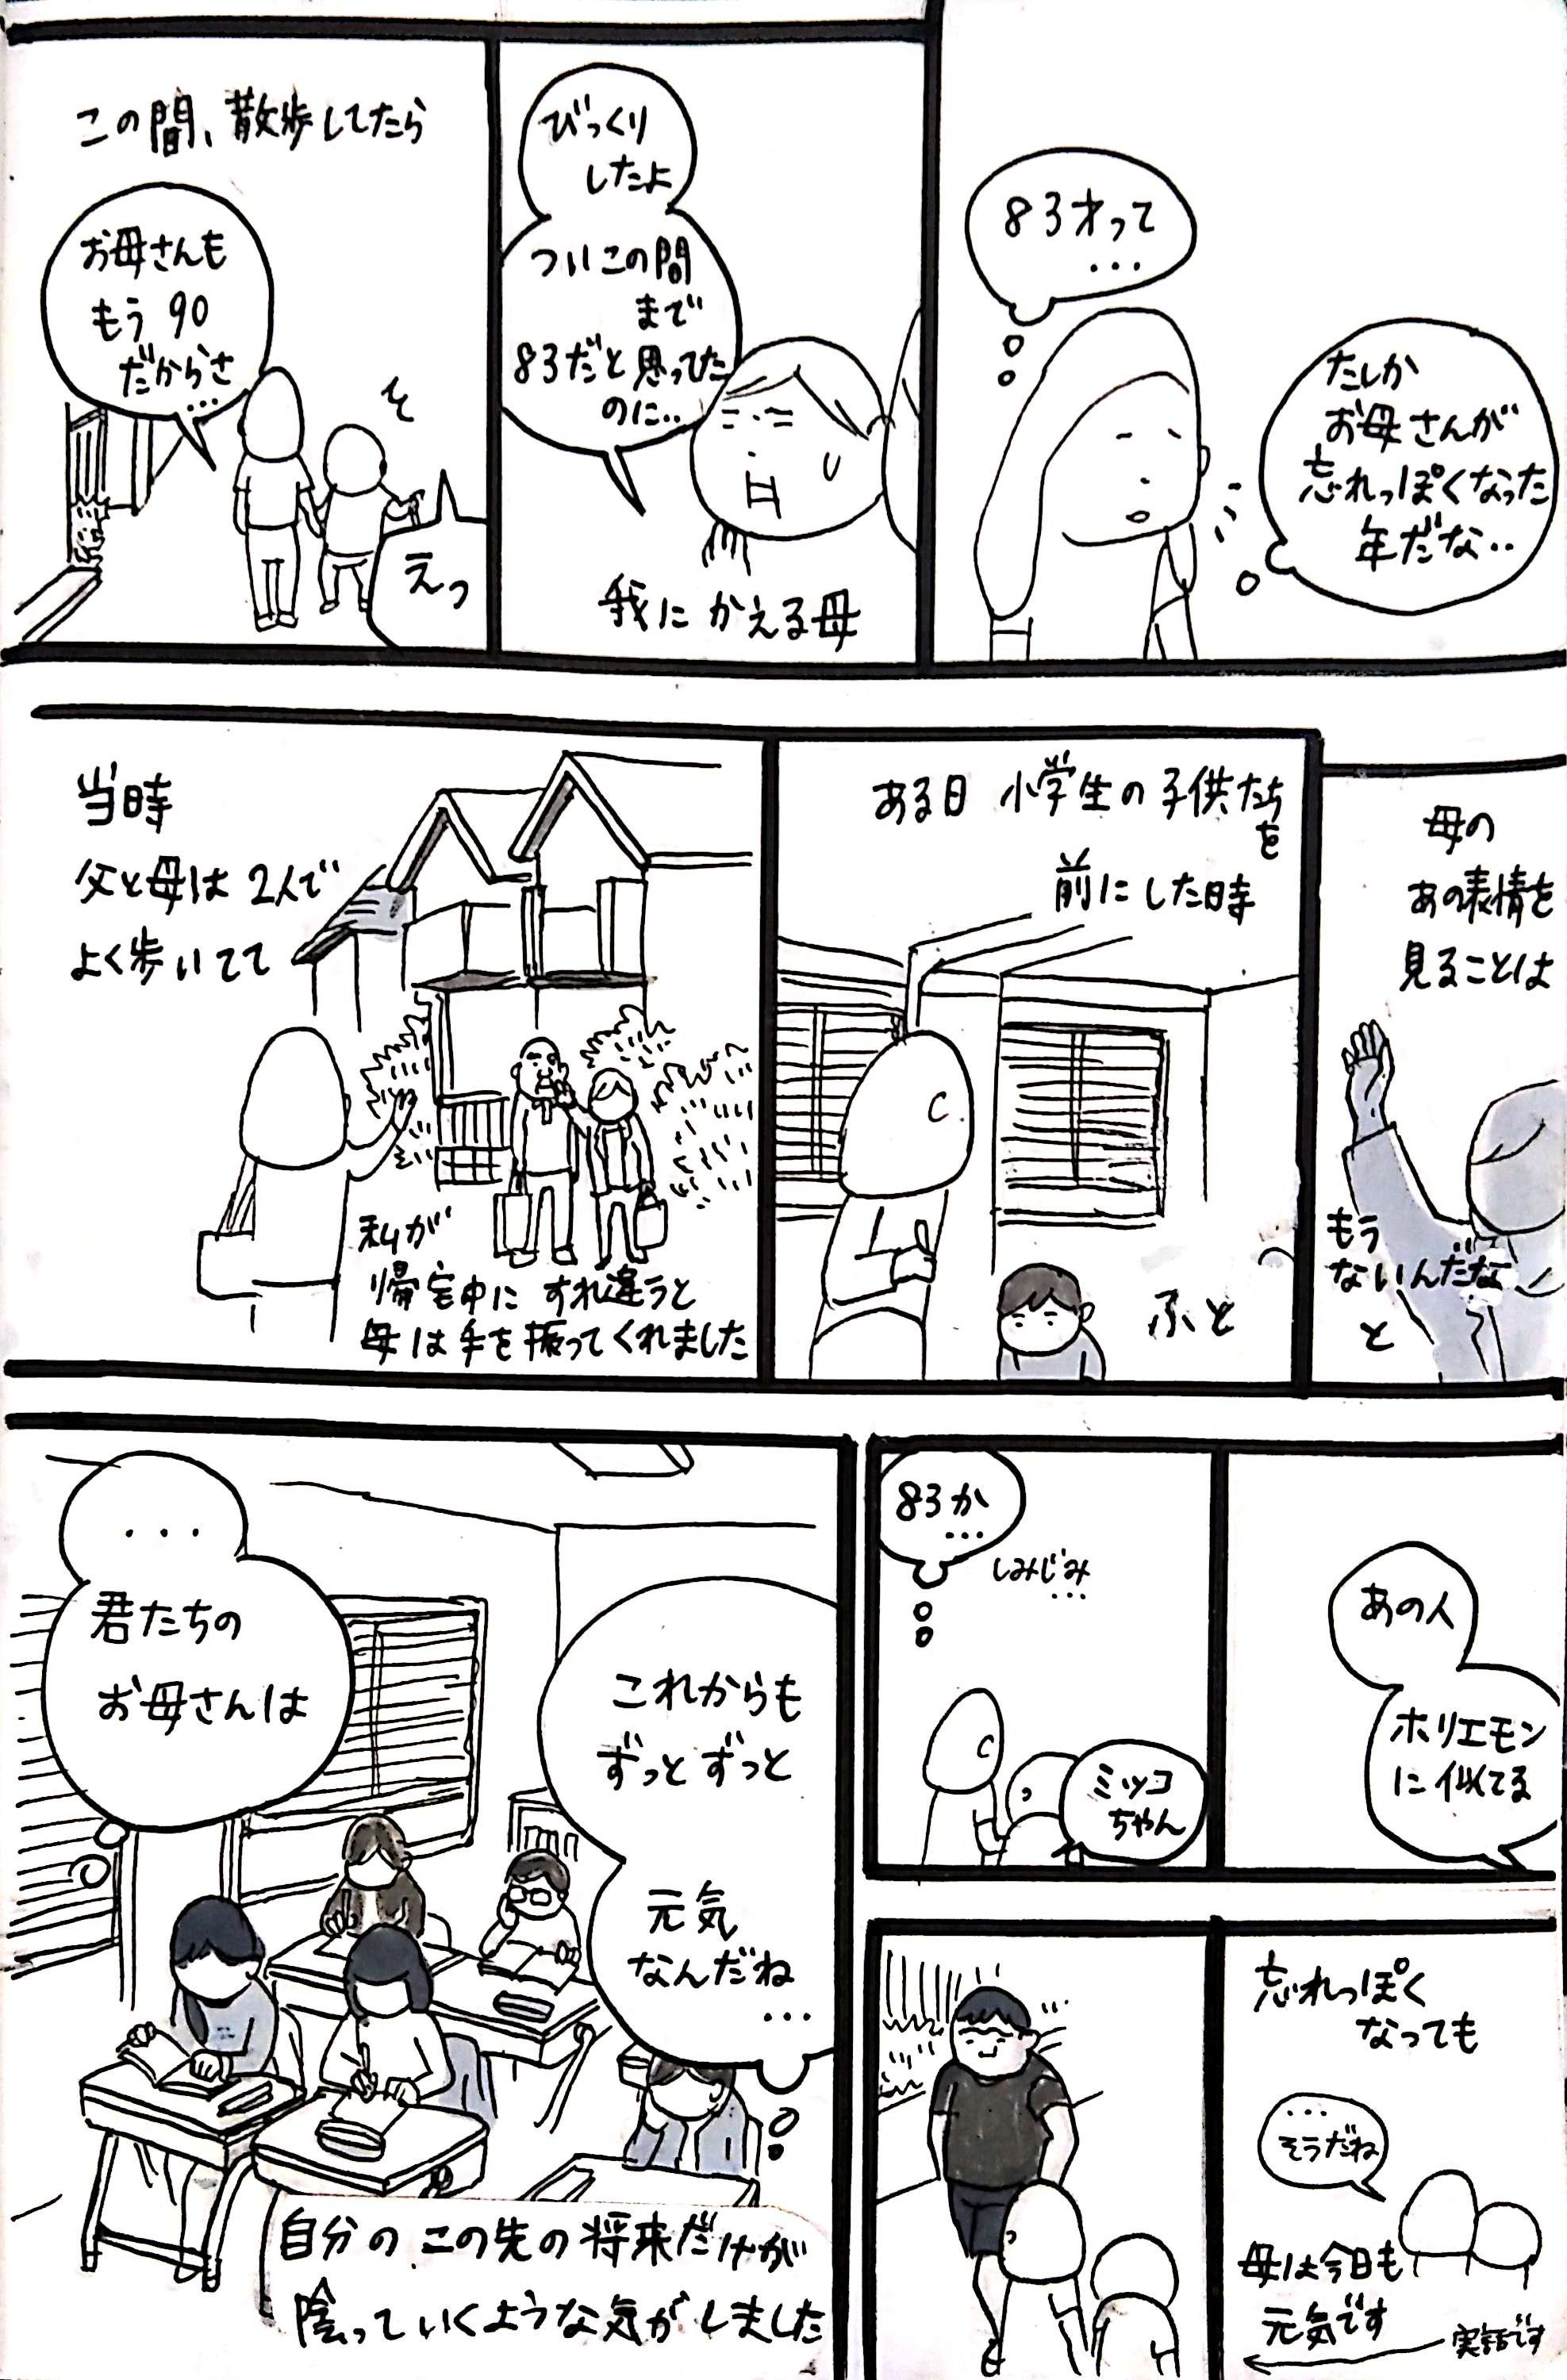 この間、散歩してたら
お母さんも
もう90
だからさ
…
えっ
びっくり
したよ
ついこの間
まで
83だと思ってた
のに‥
我にかえる母
83才って
…
たしか
お母さんが
忘れっぽくなった
年だな‥
当時
父と母は2人で
よく歩いてて
私が
帰宅中にすれ違うと
母は手を振ってくれました
ある日 小学生の子供たち
を
前にした時
ふと
母の
あの表情を
見ることは
もう
ないんだな
と
…
君たちの
お母さんは
これからも
ずっとずっと
元気
なんだね
…
自分のこの先の将来だけが
陰っていくような気がしました
83か
…
しみじみ
…
ミツコ
ちゃん
あの人
ホリエモン
に似てる
忘れっぽく
なっても
…
そうだね
母は今日も
元気です
実話です